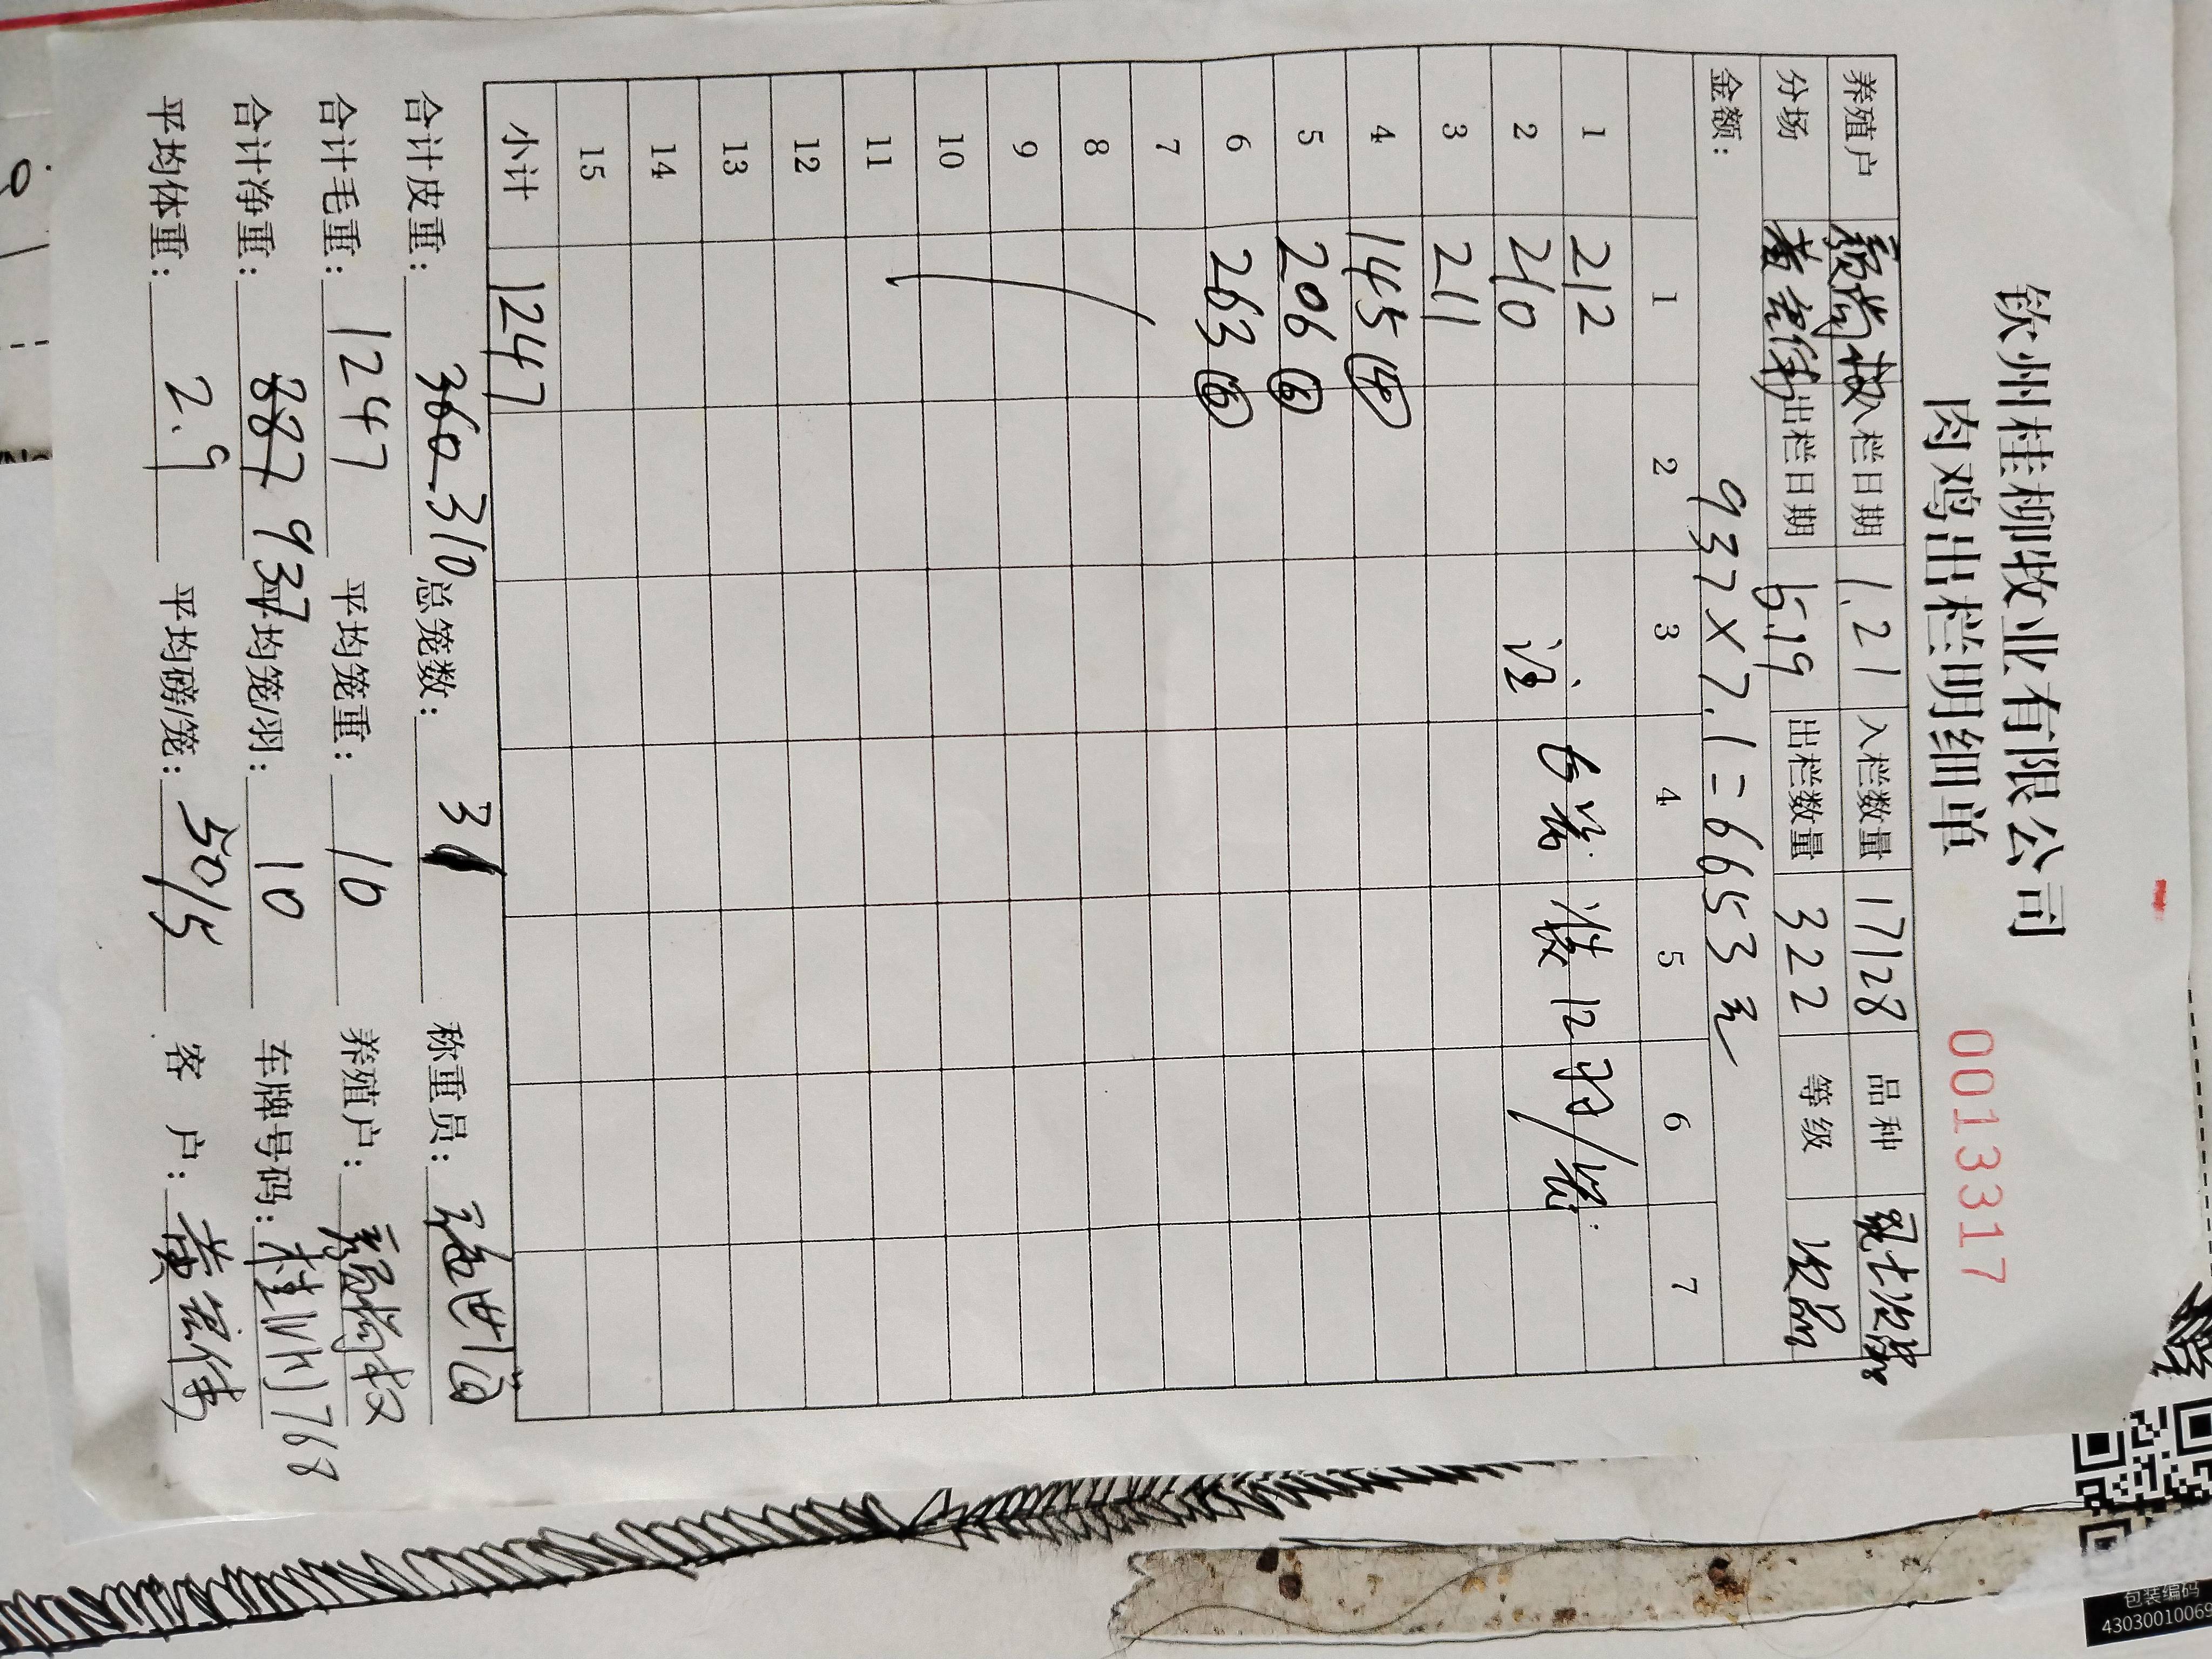 钦州桂柳牧业有限公司
肉鸡出栏明细单
0013317
养殖户 颜尚权 入栏日期 1.21 入栏数量 17128 品种
分场 出栏日期 5.19 出栏数量 322 等级 次品
金额： 937×7.1=6653元
1 2 3 4 5 6 7
1 212
2 210 注 6笼 装12羽/笼
3 211
4 145 ④
5 206 ⑤
6 263 ⑥
7
8
9
10
11
12
13
14
15
小计 1247
合计皮重： 360 310 总笼数： 31 称重员：
合计毛重： 1247 平均笼重： 10 养殖户： 颜尚权
合计净重： 887 937 平均笼/羽： 10 车牌号码： 桂
平均体重： 2.9 平均磅/笼： 50/5 客 户： 黄宏伟
包装编码
43030010069